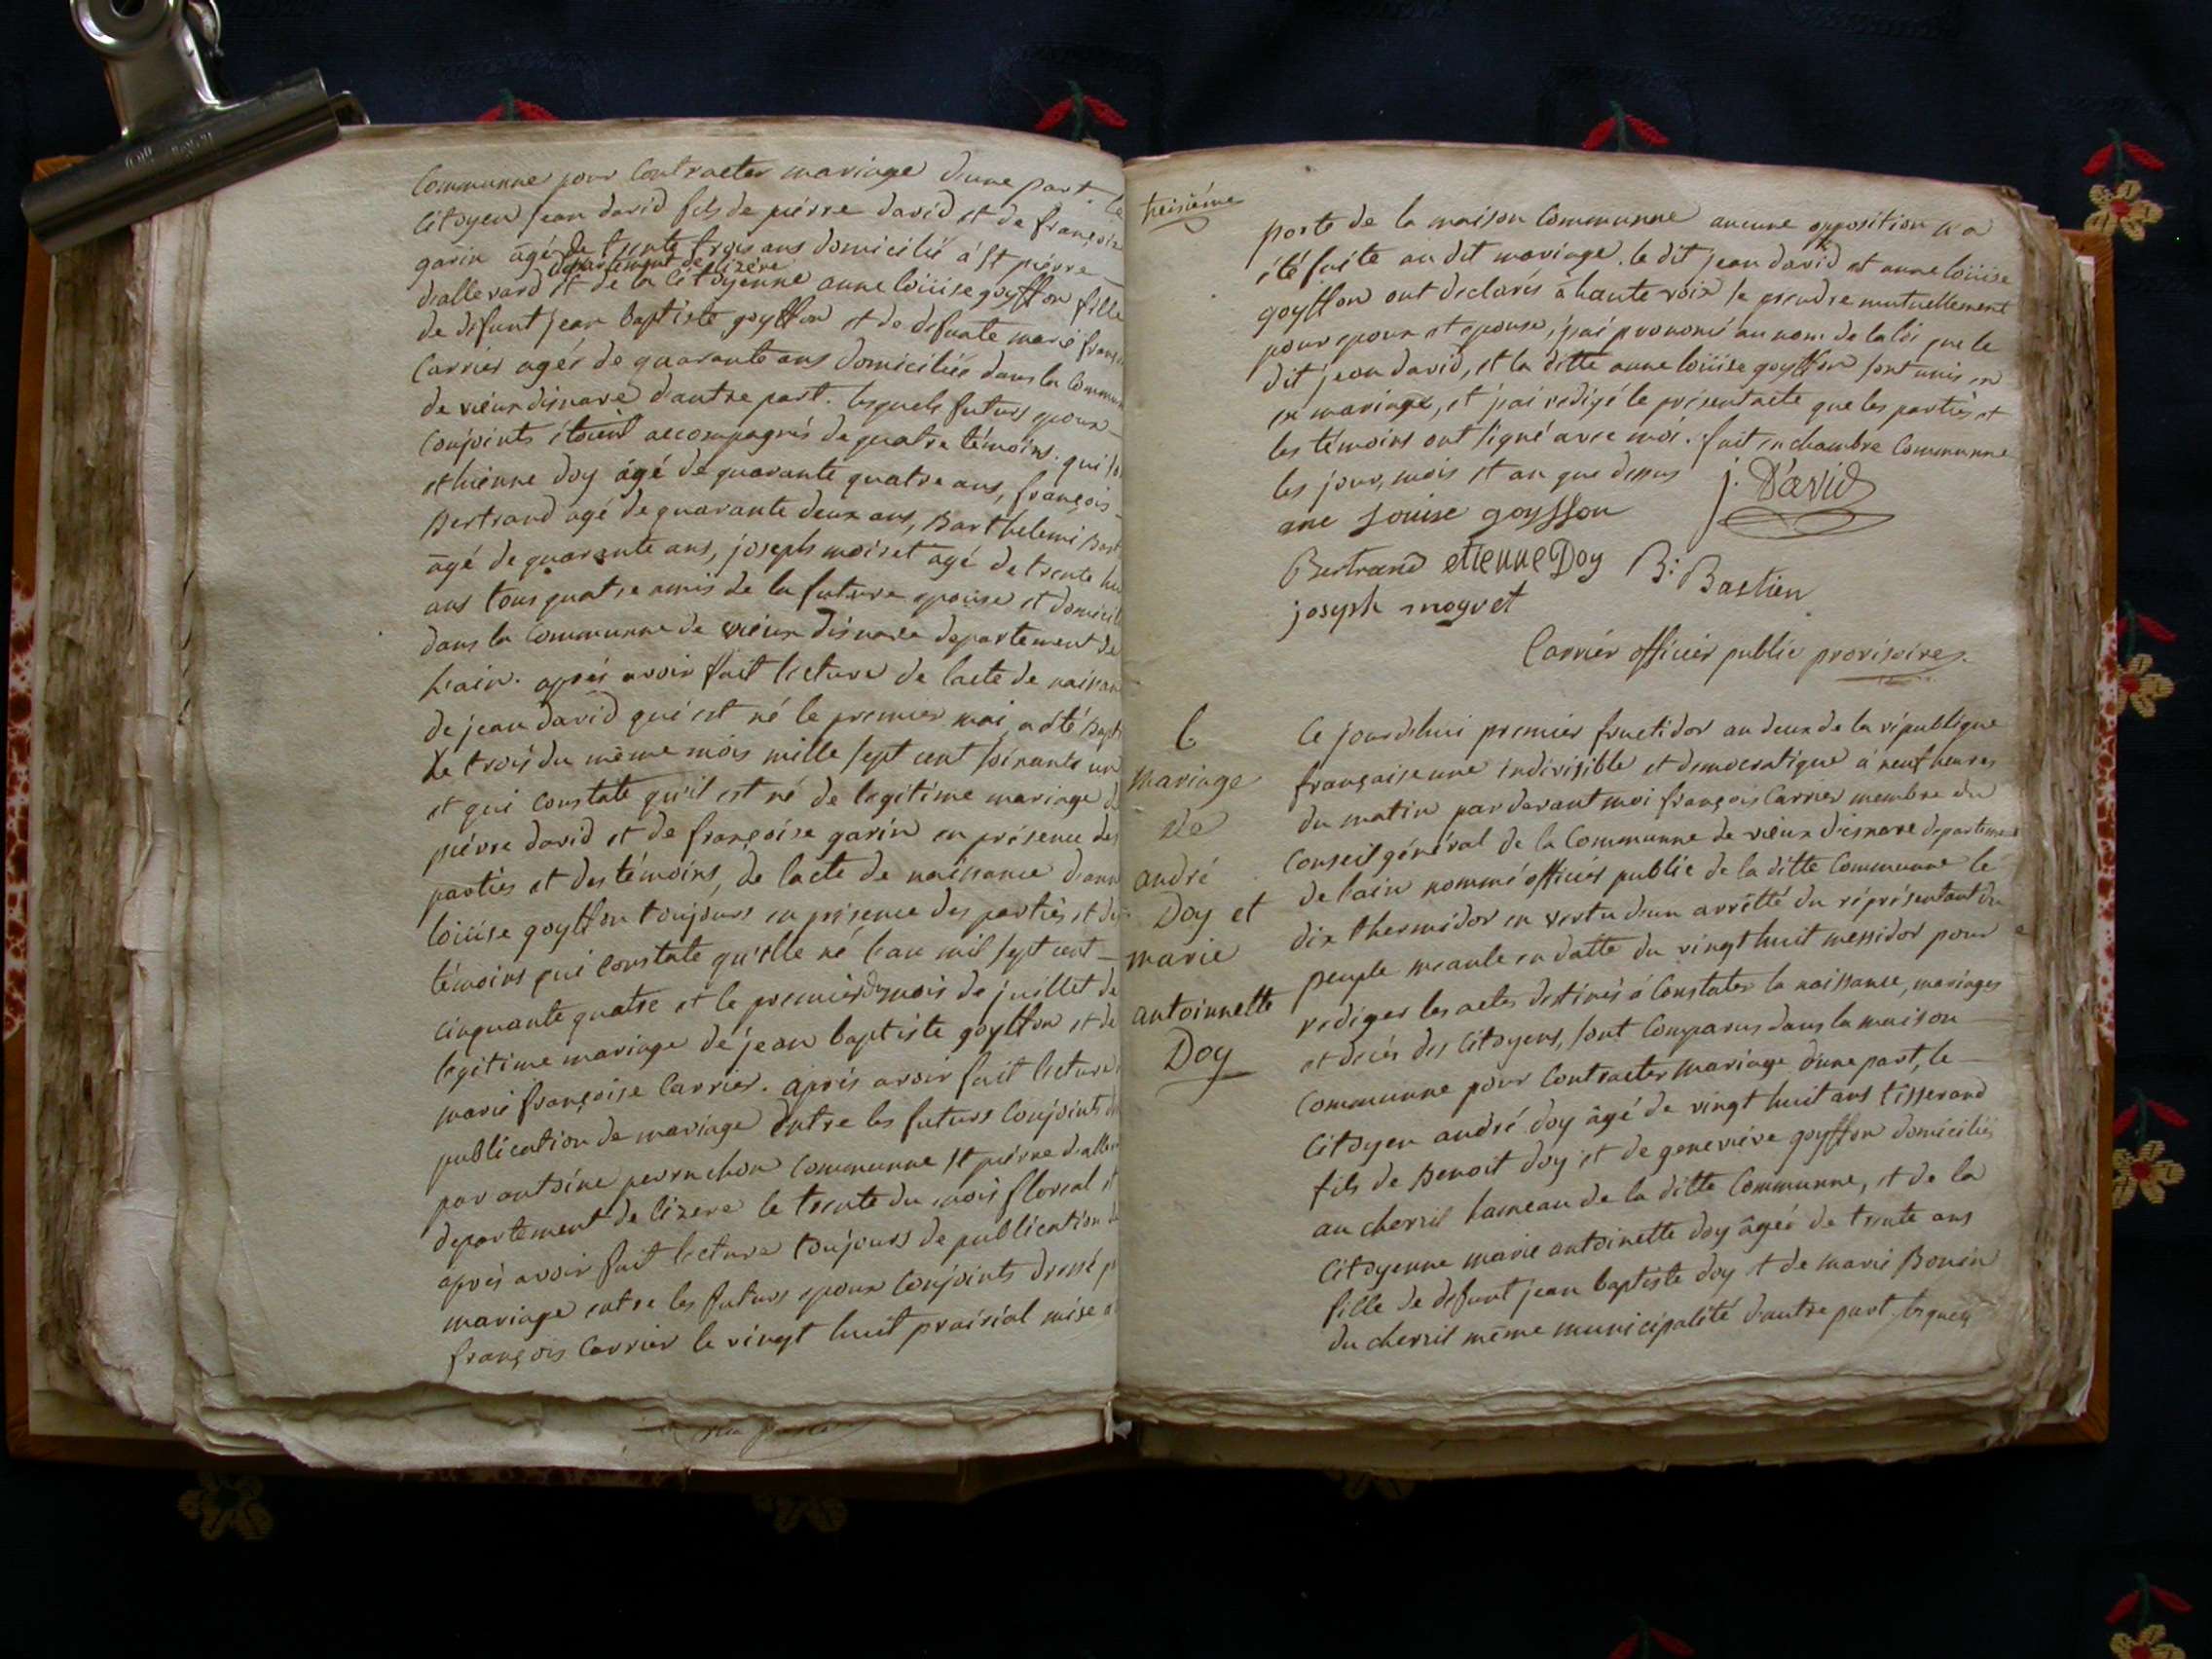 Communne pour Contracter mariage d'une part le
Citoyen jean david fils de piérre david et de françoise
garin âgé de trente trois ans domicilié á St piérre
département de lizére
dallevard et de la Citoyenne anne loüise goyffon fille
de défunt jean baptiste goyffon et de defunte marié franç
Carrier agéé de quarante ans domiciliéé dans la Commun
de vieux disnave d'autre part. lesquels futurs epoux
Conjoints étoient accompagnés de quatre témoins. qui so
ethienne doy âgé de quarante quatre ans, françois
Bertrand agé de quarante deux ans, Barthelemi Bast
âgé de quarante ans, joseph moiret âgé de trente hui
ans tous quatre amis de la future epouse et domicil
dans la Communne de vieux disnave departement de
lain. aprés avoir fait lecture de lacte de naissan
de jean david qui est né le premier mai, a été Bapti
le trois du même mois mille sept cent soixante un
et qui Constate qu'il est né de legitime mariage d
piérre david et de françoise garin en présence des
partiés et des témoins, de lacte de naissance d'ann
loüise goyffon toujours en présence des partiés et des
témoins qui Constate qu'elle né l'an mil sept cent
cinquante quatre et le premier du mois de juillet de
legitime mariage de jean baptiste goyffon et de
marié françoise Carrier. aprés avoir fait lecture
publication de mariage entre les futurs Conjoints
par antoine perruchon Communne St piérre d'allev
departement de lizere le trente du mois floreal et
aprés avoir fait lecture toujours de publication de
mariage entre les futurs epoux Conjoints dressé p
françois Carrier le vingt huit prairial mise a
treisiéme
porte de la maison Communne aucune opposition n'a
été faite au dit mariage. le dit jean david et anne loüise
goyffon ont declarés á haute voix se prendre mutuellement
pour epoux et epouse, j'ai prononcé au nom de la loi que le
dit jean david, et la ditte anne loüise goyffon sont unis en
en mariage, et j'ai redigé le présent acte que les partiés et
les témoins ont signé avec moi. fait en chambre Communne
les jour, mois et an que dessus j. David
ane Louise goyffon
Bertrand etienne Doy B: Bastien
joseph moyret
Carriér officiér public provisoire.
6
Mariage
de
andré
Doy et
marie
antoinnette
Doy
Ce jourd'hui premiér fructidor an deux de la république
française une indivisible et democratique á neuf heures
du matin par devant moi françois Carrier membre du
Conseil général de la Communne de vieux disnave departement
de lain nommé officiér public de la ditte Communne le
dix thermidor en vertu d'un arrêtté du réprésentant du
peuple meaule en datte du vingt huit messidor pour
rediger les actes destinés á Constater la naissance, mariages
et décés des Citoyens, sont Comparus dans la maison
Communne pour Contracter mariage d'une part, le
Citoyen andré doy âgé de vingt huit ans tisserand
fils de Benoit doy et de geneviéve goyffon domiciliés
au cherril hameau de la ditte Communne, et de la
Citoyenne marie antoinette doy âgéé de trente ans
fille de defunt jean baptiste doy et de marié Bonin
du cherril même municipalité d'autre part lesquels